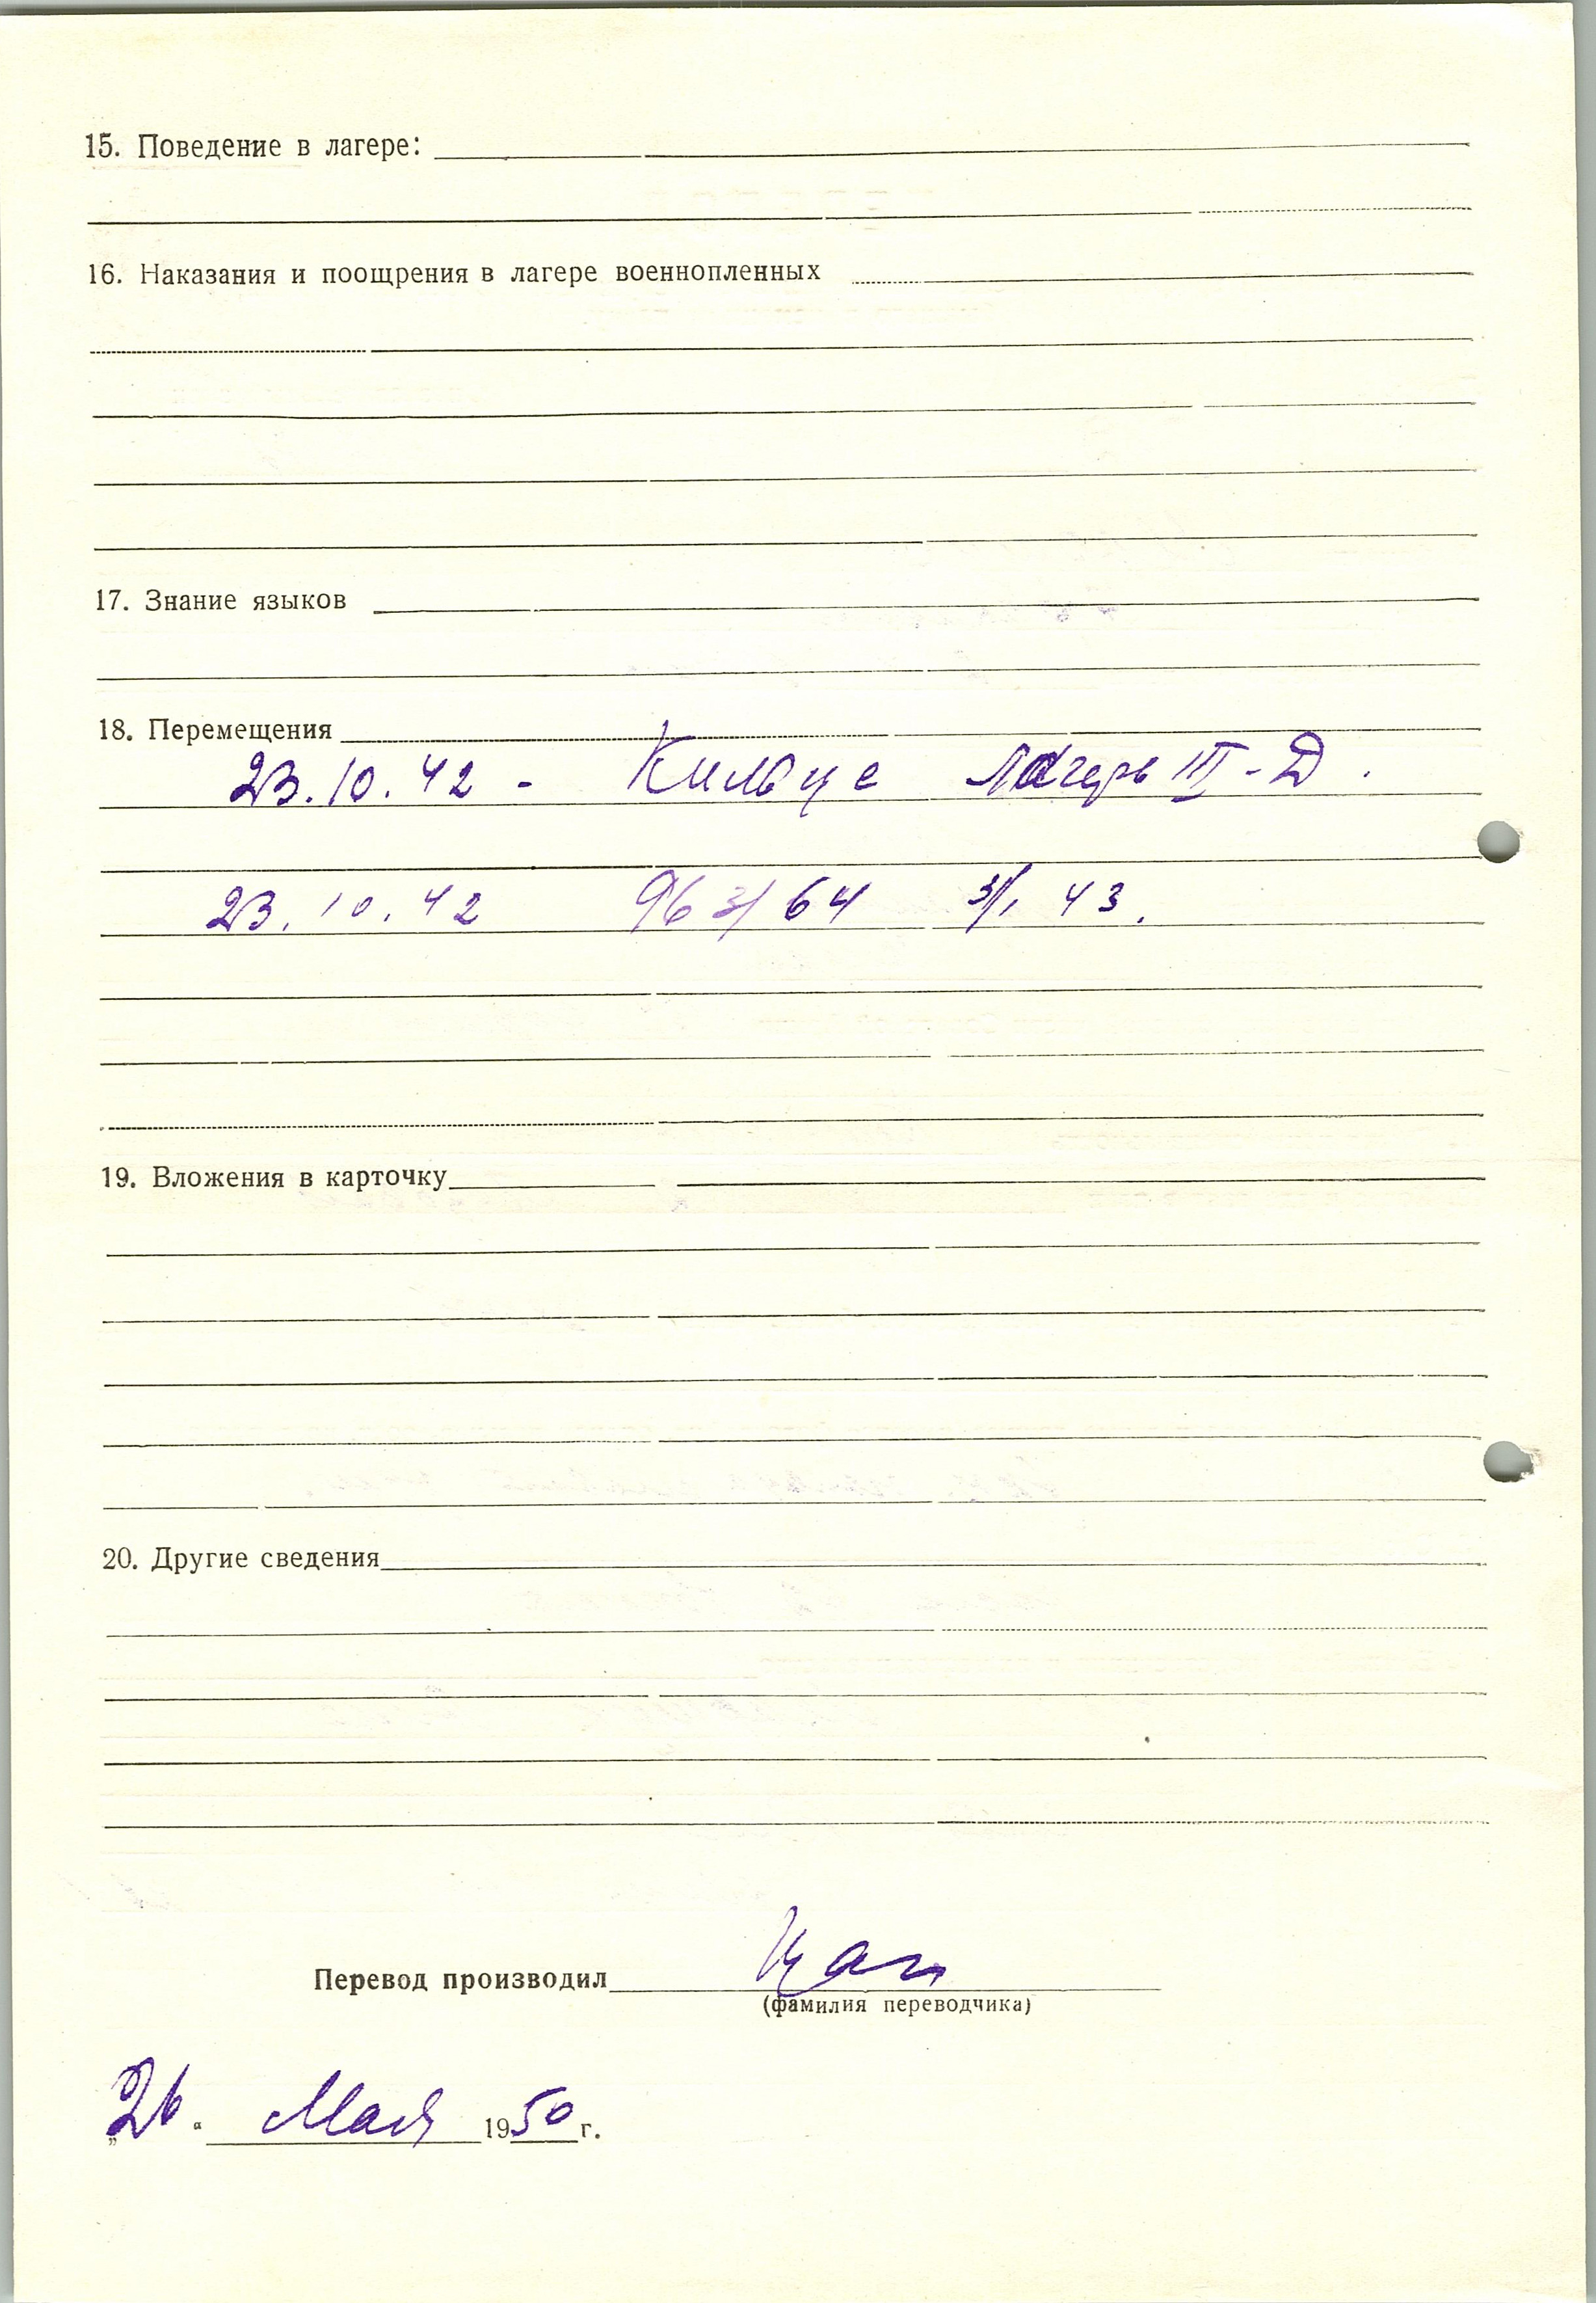 15. Поведение в лагере:
16. Наказания и поощрения в лагере военнопленных
17. Знание языков
18. Перемещения
23.10.42 - Кильце Лагерь III-Д.
23.10.42 963/64 3/I. 43.
19. Вложения в карточку
20. Другие сведения
Перевод производил
(фамилия переводчика)
„26“ Мая 1950 г.